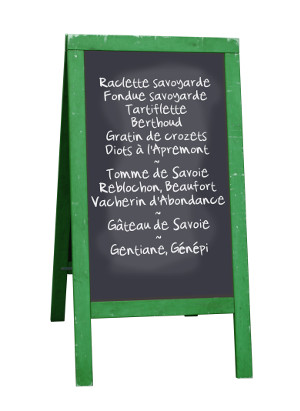 Raclette savoyarde
Fondue savoyarde
Tartiflette
Berthoud
Gratin de crozets
Diots à l'Apremont
~
Tomme de Savoie
Reblochon, Beaufort
Vacherin d'Abondance
~
Gâteau de Savoie
~
Gentiane, Génépi